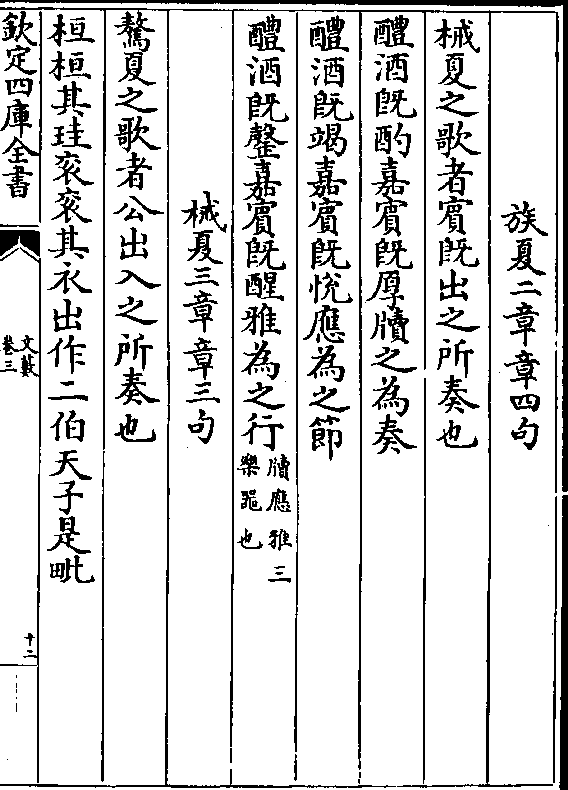 族夏二章章四句
械夏之歌者賓既出之所奏也
醴酒既酌嘉賓既厚牘之為奏
醴酒既竭嘉賓既恱應為之節
醴酒既罄嘉賓既醒雅為之行牘應雅三
樂器也
械夏三章章三句
驁夏之歌者公出入之所奏也
桓桓其珪衮衮其衣出作二伯天子是毗
欽定四庫全書
文藪
卷三
十二